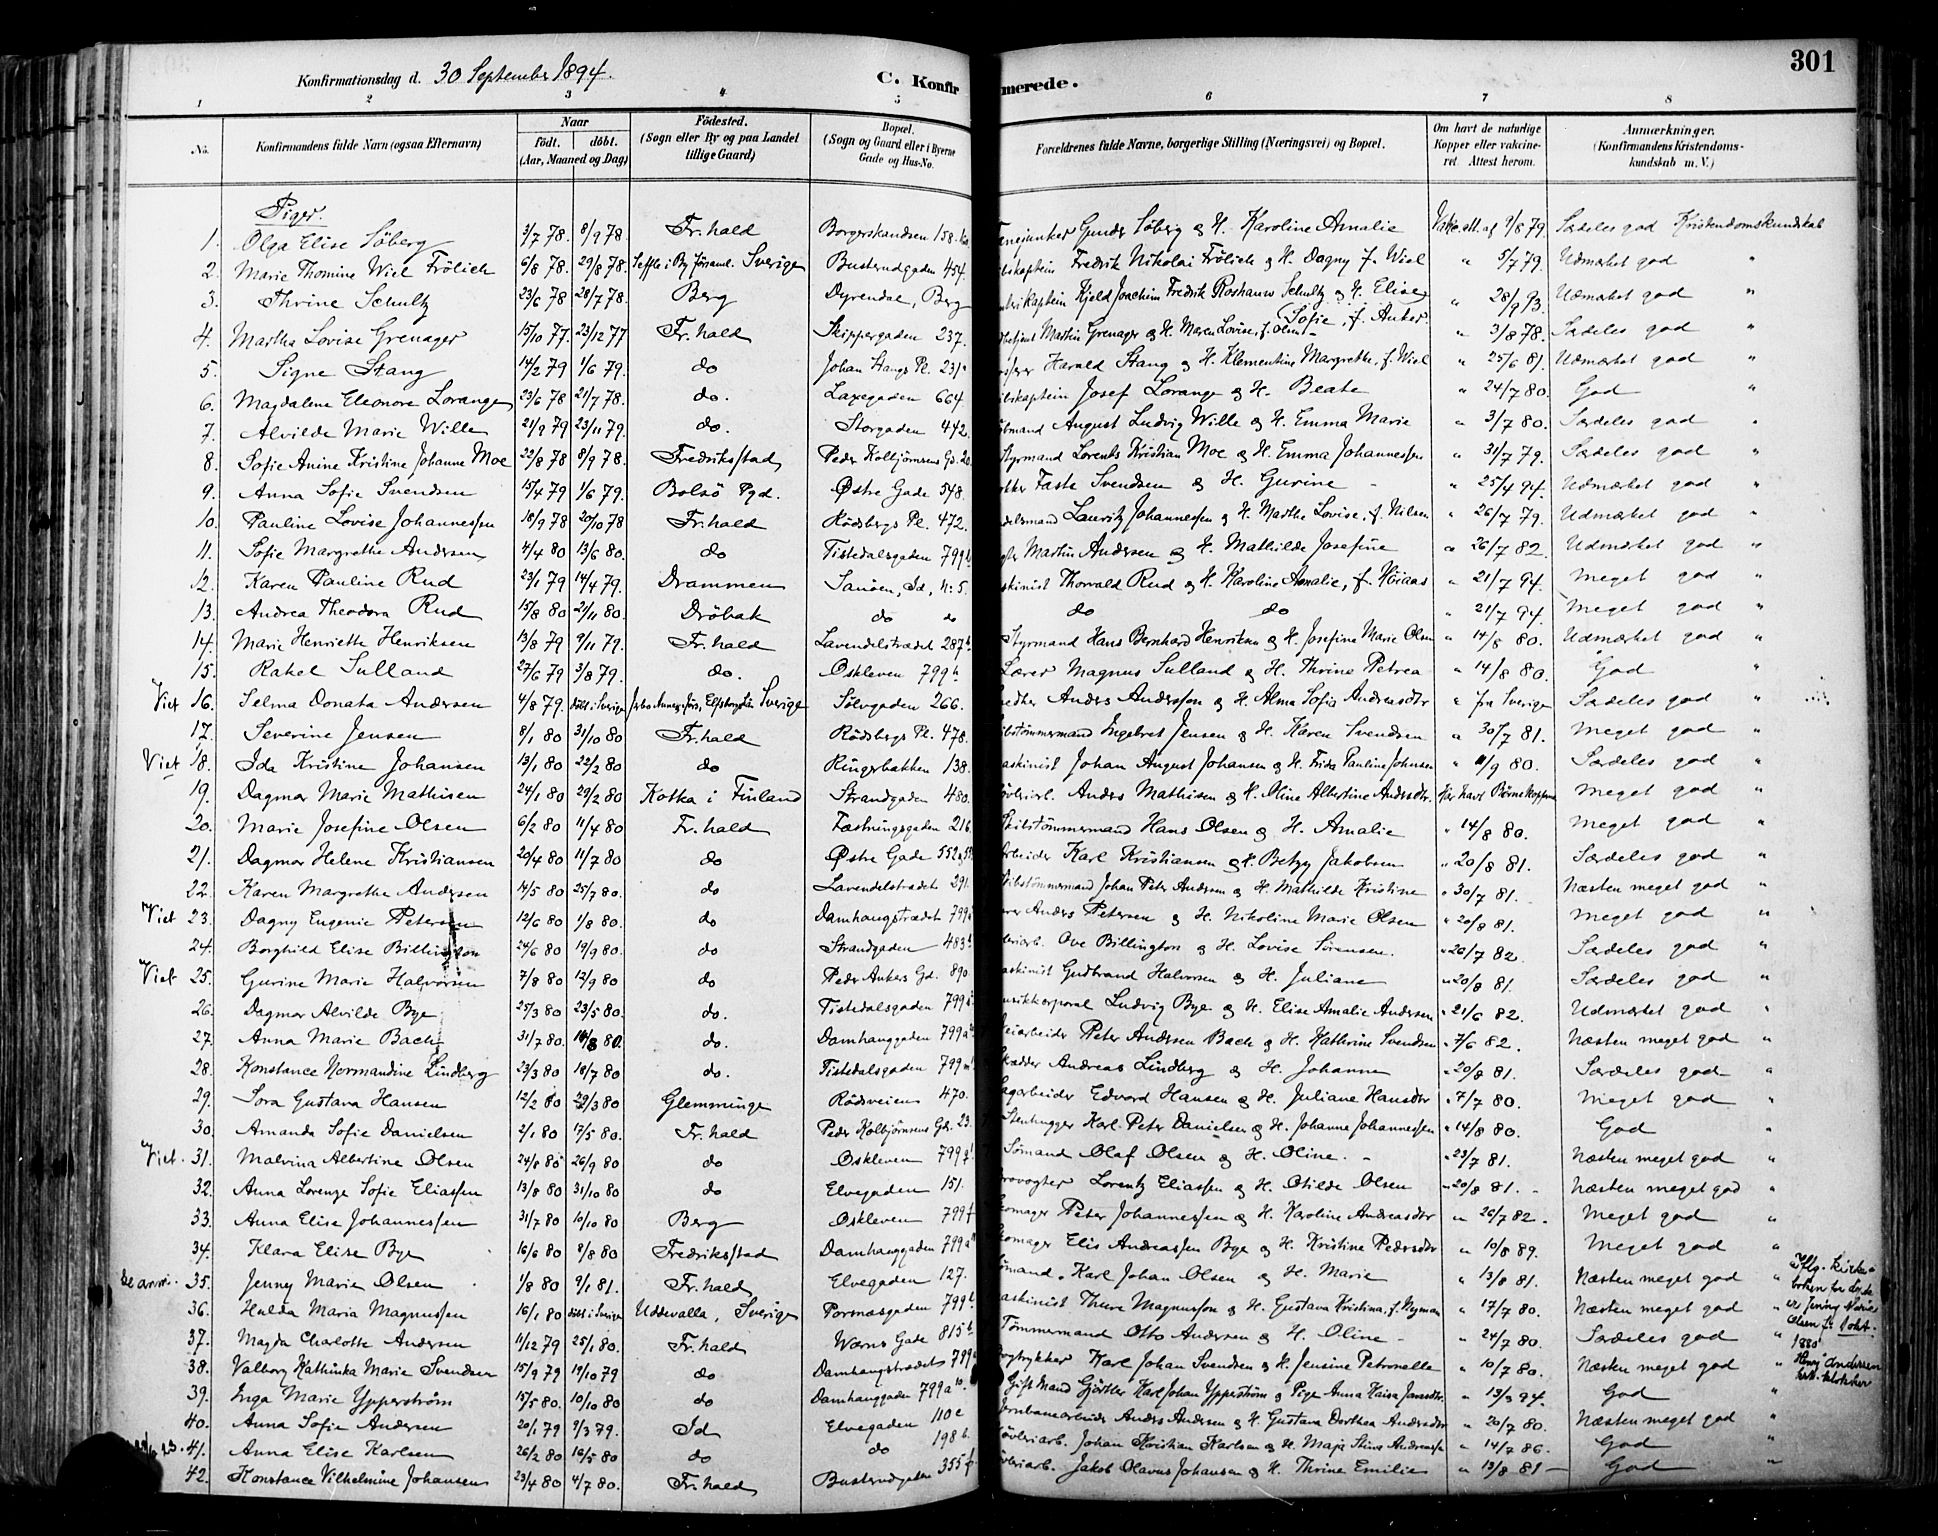 301
Konfirmationsdag d. 30 September 1894.
C. Konfirmerede.
1 2 3 4 5 6 7 8
No. Konfirmandens fulde Navn (ogsaa Efternavn) Naar födt. döbt. (Aar, Maaned og Dag) Födested. (Sogn eller By og paa Landet tillige Gaard) Bopæl. (Sogn og Gaard eller i Byerne Gade og Hus-No. Forældrenes fulde Navne, borgerlige Stilling (Næringsvei) og Bopæl. Om havt de naturlige Kopper eller vakcineret Attest herom. Anmærkninger. (Konfirmandens Kristendomskundskab m. V.)
Piger.
1. Olga Elise Söberg 3/7 78. 8/9 78. Fr.hald Borgerskandsen 158. Gunder Söberg og H. Karoline Amalie 9/8 79. Særdeles god Kristendomskundskab
2. Marie Thomine Wiel Frölich 6/8 78. 29/8 78. Sverige Busterudgaden 454. Fredrik Nikolai Frölich & H. Dagny f. Wiel " 5/7 79. Udmærket god "
3. Thrine Schultz 23/6 78 28/7 78. Berg Dyrendal, Berg Kjeld Joachim Fredrik Roshauw Schultz og H. Elise Sofie, f. Anker " 28/9 93. Udmærket god "
4. Martha Lovise Grenager 15/10 77. 23/12 77 Fr.hald Skippergaden 237. Martin Grenager og H. Maren Lovise, f. Olsen " 3/8 78. Særdeles god "
5. Signe Stang 14/2 79 1/6 79. do Johan Stangs Pl. 231 Harald Stang og H. Klementine Margrethe, f. Wiel " 25/6 81. Udmærket god "
6. Magdalene Eleonore Lorange 23/6 78 21/7 78. do. Laxegaden 664. Josef Lorange og H. Beate " 24/7 80. God "
7. Alvilde Marie Wille 21/9 79 23/11 79. do. Storgaden 442. August Ludvig Wille og H. Emma Marie " 3/7 80. Særdeles god "
8. Sofie Anine Kristine Johanne Moe 22/8 78 8/9 78. Fredriksstad Peder Kolbjörnsens Gd. 20 Styrmand Lorents Kristian Moe og H. Emma Johannessen " 31/7 79. Særdeles god "
9. Anna Sofie Svendsen 15/4 79 1/6 79. Bolsö Pgd. Østre Gade 548. Faste Svendsen & H. Gurine - " 25/4 94. Udmærket god "
10. Pauline Lovise Johannessen 18/9 78 20/10 78 Fr.hald Rödsbergs Pl. 472. Lauritz Johannessen og H. Marthe Lovise, f. Nilsen " 26/7 79. Udmærket god "
11. Sofie Margrethe Andersen 4/4 80 13/6 80. do Tistedalsgaden 799 Martin Andersen og H. Mathilde Josefine " 26/7 82. Udmærket god "
12. Karen Pauline Rud 23/1 79 14/4 79. Drammen Sanöen, Id, n: 5. Thorvald Rud og H. Karoline Amalie, f. Höiaas " 21/7 94. Meget god "
13. Andrea Theodora Rud 15/8 80 21/11 80. Dröbak do do do do " 21/7 94. Meget god "
14. Marie Henriette Henriksen 13/8 79 9/11 79. Fr.hald Lavendelstrædet 287 b. Styrmand Hans Bernhard Henriksen og H. Josefine Marie Olsen " 14/8 80. Udmærket god "
15. Rakel Sulland 27/6 79 3/8 79. do. Oskleven 799 h. Lærer Magnus Sulland & H. Thrine Petrea " 14/8 80. God "
Viet 16. Selma Donata Andersen 4/8 79. döbt i Sverige Sverige Sölvgaden 266. Anders Andersson og H. Alma Sofia Andreasdtr " fra Sverige Særdeles god "
17. Severine Jensen 8/1 80 31/10 80 Fr.hald Rödsbergs Pl. 478. Ingebret Jensen og H. Karen Svendsen " 30/7 81. Meget god "
Viet 18. Ida Kristine Johansen 13/1 80 22/2 80 do Ringerbakken 138. Johan August Johansen & H. Frida Pauline Johnsen " 11/9 80. Særdeles god "
19. Dagmar Marie Mathisen 24/1 80 29/2 80 Kotka i Finland Strandgaden 480. Anders Mathisen og H. Oline Albertine Andersdtr. Har havt Börnekopperne Meget god "
20. Marie Josefine Olsen 6/2 80 11/4 80 Fr.hald Fæstningsgaden 216. Skibstömmermand Hans Olsen og H. Amalie " 14/8 80. Meget god "
21. Dagmar Helene Kristiansen 20/4 80 11/7 80 do Østre Gade 552 Arbeider Karl Kristiansen og H. Betzy Jakobsen " 20/8 81. Særdeles god "
22. Karen Margrethe Andersen 14/5 80 25/7 80. do Lavendelstrædet 291. Skibstömmermand Johan Peter Andersen og H. Mathilde Kristine " 30/7 81. Næsten meget god "
Viet 23. Dagny Eugenie Petersen 12/6 80 1/8 80. do Damhangstrædet 799 Anders Petersen og H. Nikoline Marie Olsen " 20/8 81. Meget god "
24. Borghild Elise Billington 24/6 80 19/9 80. do Strandgaden 483 b Ove Billington og H. Lovise Sörensen. " 26/7 82. Særdeles god "
Viet 25. Gurine Marie Halvorsen 7/8 80 12/9 80 do Peder Ankers Gd. 890. Gudbrand Halvorsen og H. Juliane " 20/8 81. Særdeles god "
26. Dagmar Alvilde Bye 27/3 80 23/5 80. do. Tistedalsgaden 799 Musikkorporal Ludvig Bye og H. Elise Amalie Andersen " 21/6 82. Udmærket god "
27. Anna Marie Bach 31/7 80. /8 80. do. Damhanggaden 799 a Peter Andersen Bach og H. Kathrine Svendsen " 7/6 82. Næsten meget god "
28. Konstance Normandine Lindberg 23/3 80 18/7 80 do. Tistedalsgaden 799 Skrædder Andreas Lindberg og H. Johanne " 20/8 81. Særdeles god "
29. Sora Gustava Hansen 12/2 80 29/3 80 Glemminge Rödsveien 470. Sagarbeider Edvard Hansen og H. Juliane Hansdtr " 7/7 80. Meget god "
30. Amanda Sofie Danielsen 2/1 80 17/5 80. Fr.hald Peder Kolbjörnsens Gd. 23. Stenhugger Karl Peter Danielsen og H. Johanne Johannessen " 14/8 80. God "
Viet. 31. Malvina Albertine Olsen 24/8 80 26/9 80 do Oskleven 799 Sömand Olaf Olsen og H. Oline. - " 23/7 81. Næsten meget god "
32. Anna Lorenze Sofie Eliassen 13/8 80 31/10 80 do Elvegaden 151. Brovogter Lorentz Eliassen og H. Otilde Olsen " 20/8 81. - Næsten meget god "
33. Anna Elise Johannessen 31/7 80 10/10 80 Berg Oskleven 799 f Skomager Peter Johannessen og H. Karoline Andreasdtr " 26/7 82. Meget god "
34. Klara Elise Bye 16/6 80 8/8 80 Fredriksstad Damhanggaden 799 a Skomager Elis Andreassen Bye og H. Kristine Pedersdtr " 10/8 89. Meget god "
Se anm. 35. Jenny Marie Olsen 1/8 80 9/1 81. Fr.hald Elvegaden 127. Sömand Karl Johan Olsen og H. Marie " 13/8 81. Næsten meget god " Iflg. kirkeboken for Ide er Jenny Marie Olsen f. 1 okt. 1880 Henry Andersen kst. klokker
36. Hulda Maria Magnussen 16/1 80 döbt i Sverige Uddevalla, Sverige Pormesgaden 799 Maskinist Thure Magnusson og H. Gustava Kristina, f. Nyman " 17/7 80. Næsten meget god "
37. Magda Charlotte Andersen 11/12 79 25/1 80. Fr.hald Warns Gade 815 b Tömmermand Otto Andersen og H. Oline - " 24/7 80. Særdeles god "
38. Valborg Kathinka Marie Svendsen 15/9 79 19/10 79 do Damhangstrædet 799 Bogtrykker Karl Johan Svendsen & H. Jensine Petronelle " 10/7 80. Næsten meget god "
39. Inga Marie Ypperström 15/5 80. 10/10 80 do Damhanggaden 799 a 10. Gift Mand Gjörtler Karl Johan Ypperström og Pige Anna Kaisa Jansdtr. " 13/3 94. God "
40. Anna Sofie Andersen 20/1 79 9/3 79. Id Elvegaden 110 c Jernbanearbeider Anders Andersen og H. Gustava Dorthea Andersdtr " 20/7 80. Næsten meget god "
41. Anna Elise Karlsen 26/2 80 16/5 80 do do 198 b. Johan Kristian Karlsen og H. Maja Stina Andreassen " 14/7 86. God "
42. Konstance Vilhelmine Johansen 23/4 80 4/7 80. Fr.hald Busterudgaden 355 f Jakob Olavus Johansen og H. Thrine Emilie " 13/8 81 - God "